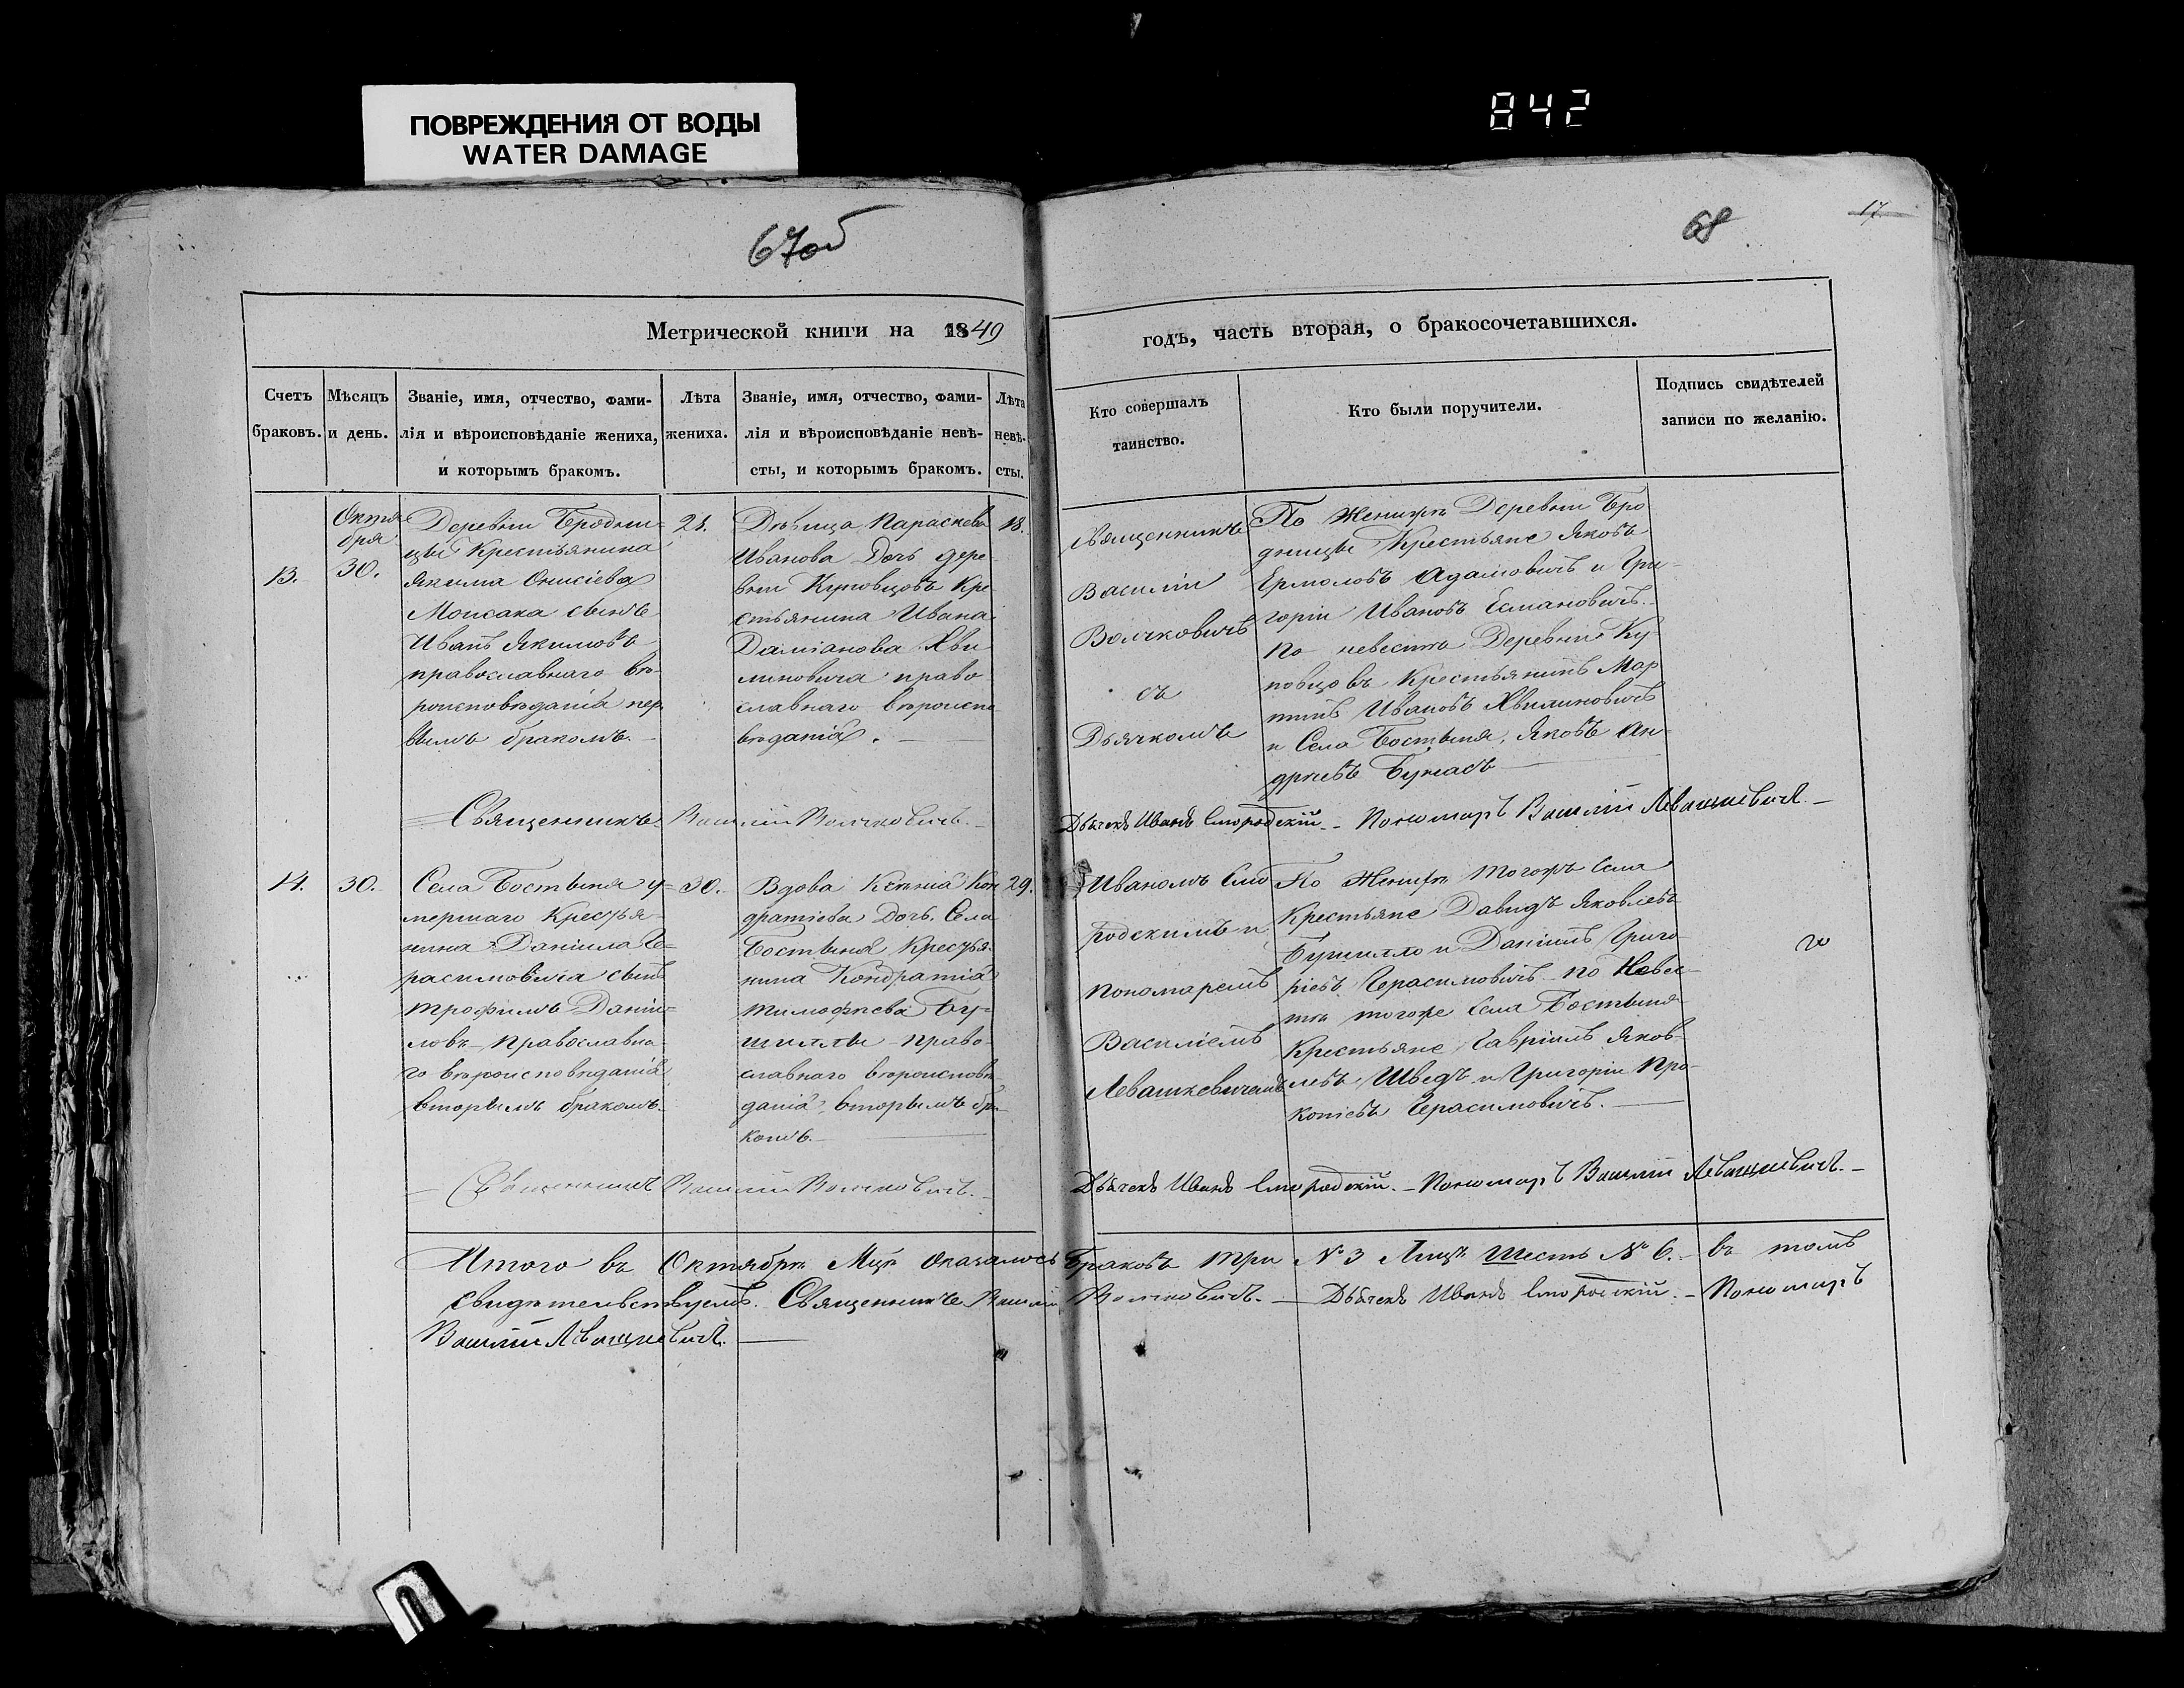 ПОВРЕЖДЕНИЯ ОТ ВОДЫ
WATER DAMAGE
842
67об
68
17
Метрической книги на 1849
годъ, часть вторая, о бракосочетавшихся.
Счетъ браковъ.
Мѣсяцъ и день.
Званіе, имя, отчество, фами-
лія и вѣроисповѣданіе жениха,
и которымъ бракомъ.
Лѣта жениха.
Званіе, имя, отчество, фами-
лія и вѣроисповѣданіе невѣ-
сты, и которымъ бракомъ.
Лѣта невѣ-
сты.
Кто совершалъ
таинство.
Кто были поручители.
Подпись свидѣтелей
записи по желанію.
13.
Октя
бря
30.
Деревни Бродни-
цы Крестьянина
Якима Онисіева
Моисака сынъ
Иванъ Якимовъ
православнаго вѣ-
роисповѣданія пер
вымъ бракомъ.
21.
Дѣвица Параскева
Иванова Дочь дере
вни Куповцовъ Кре
стьянина Ивана
Даміанова Хви
линовича право
славнаго вѣроиспо
вѣданія.
18.
Священникъ
Василій
Волчковичъ
съ
Дьячкомъ
По Женихѣ Деревни Бро
дницы Крестьяне Яковъ
Ермоловъ Адамовичъ и Гри-
горій Ивановъ Есмановичъ.
По невестѣ Деревни Ку-
повцовъ Крестьянинъ Мар
тинъ Ивановъ Хвилиновичъ
и Села Бостыня, Яковъ Ан-
дреевъ
Священникъ Василій Волчковичъ.
Дьячекъ Иванъ Смородскій. Пономаръ Василій Левашкевичъ.
14.
30.
Села Бостыня у-
мершаго Крестья-
нина Даніила Ге-
расимовича сынъ
Трофимъ Даніи-
ловъ православна-
го вѣроисповѣданія
вторымъ бракомъ.
30.
Вдова Ксенія Кон
дратіева Дочь Села
Бостыня Крестья-
нина Кондратія
Тимофѣева Бу-
право-
славнаго вѣроисповѣ-
данія вторымъ бра-
комъ.
29.
Иваномъ Смо
родскимъ и
пономаремъ
Василіемъ
Левашкевичемъ
По Женихѣ тогожъ Села
Крестьяне Давидъ Яковлевъ
и Даніилъ Григо
ріевъ Герасимовичъ по Невес-
тѣ тогоже Села Бостыня
Крестьяне Гавріилъ Яков-
левъ Шведъ и Григорій Про-
копіевъ Герасимовичъ.
Священникъ Василій Волчковичъ.
Дьячекъ Иванъ Смородскій. Пономаръ Василій Левашкевичъ.
Итого въ Октябрѣ Мцѣ оказалось Браковъ три № 3 Лицъ шесть № 6. въ томъ
свидѣтельствуемъ. Священникъ Василій Волчковичъ. Дьячекъ Иванъ Смородскій. Пономаръ
Василій Левашкевичъ.